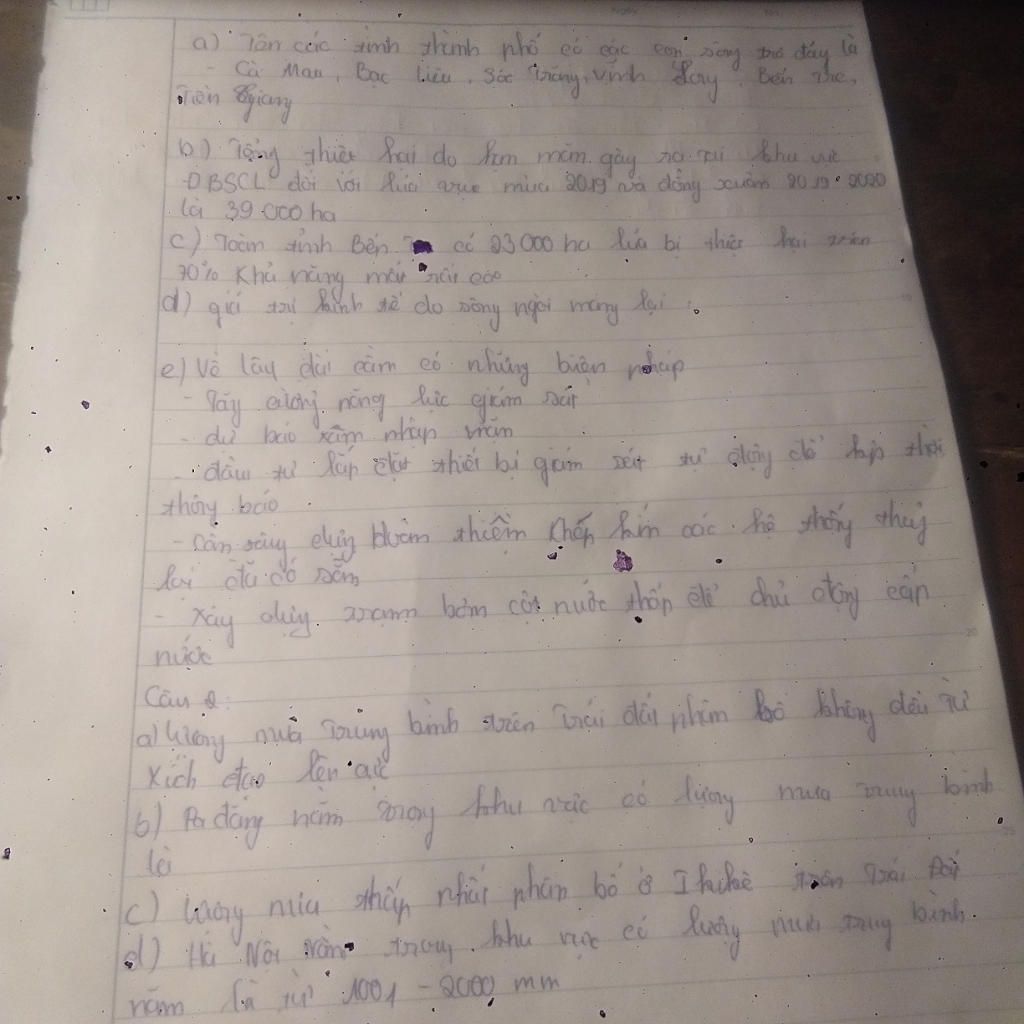 a) Tên các tỉnh thành phố có các con sông đáy là
- Cà Mau, Bạc Liêu, Sóc Trăng, Vĩnh Long, Bến Tre,
Tiền Giang
b) Tổng thiệt hại do hạn mặn gây ra tại khu vực
ĐBSCL đối với lúa mùa 2019 và đông xuân 2019-2020
là 39.000 ha
c) Toàn tỉnh Bến có 23 000 ha lúa bị thiệt hại trên
70% khả năng mất cao
d) giá trị kinh tế do sông ngòi mang lại :
e) Về lâu dài cần có những biện pháp
- Tăng cường năng lực giám sát
- dự báo xâm nhập mặn
- đầu tư lắp đặt thiết bị giám sát tự động để kịp thời
thông báo
- xây dựng khép kín các hệ thống thuỷ
lợi đã có sẵn
- Xây dựng trạm bơm cột nước thấp để chủ động cấp
nước
Câu 2:
a) Lượng mưa Trung bình trên Trái đất phân bố không đều từ
Xích đạo lên cực
b) năm trong khu vực có lượng mưa trung bình
là
c) Lượng mưa thấp nhất phân bố ở trên Trái Đất
d) Hà Nội nằm trong khu vực có lượng mưa trung bình
năm là từ 1001 - 2000 mm